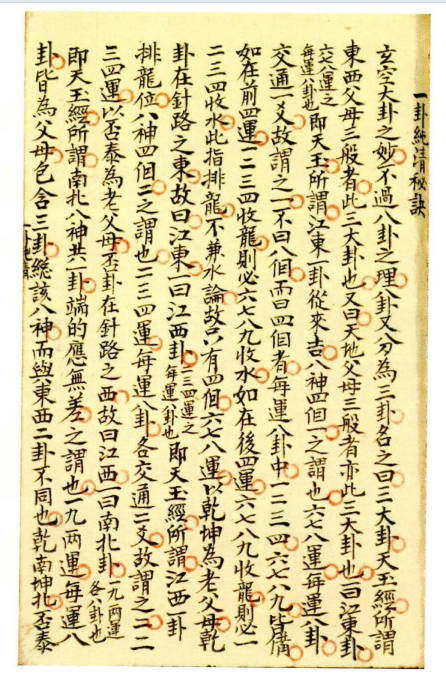 一卦純清秘訣
玄空大卦之妙不過八卦之理八卦又分為三卦名之曰三大卦天玉經所謂
東西父母三般者此三大卦也又曰天地父母三般者亦此三大卦也一曰江東卦
六七八運之每運八卦也即天玉所謂江東一卦從來吉八神四個一之謂也六七八運每運八卦
交通一爻故謂之一不曰八個而曰四個者每運八卦中一二三四六七八九皆備
如在前四運一二三四收龍則必六七八九收水如在後四運六七八九收龍則必一
二三四收水此指排龍不兼水論故只有四個六七八運以乾坤為老父母乾
卦在針路之東故曰江東一曰江西卦二三四運之每運八卦也即天玉經所謂江西一卦
排龍位八神四個二之謂也二三四運每運八卦各交通二爻故謂之二二
三四運以否泰為老父母否卦在針路之西故曰江西一曰南北卦一九兩運各八卦也
即天玉經所謂南北八神共一卦端的應無差之謂也一九兩運每運八
卦皆為父母包含三卦總該八神而與東西二卦不同也乾南坤北否泰